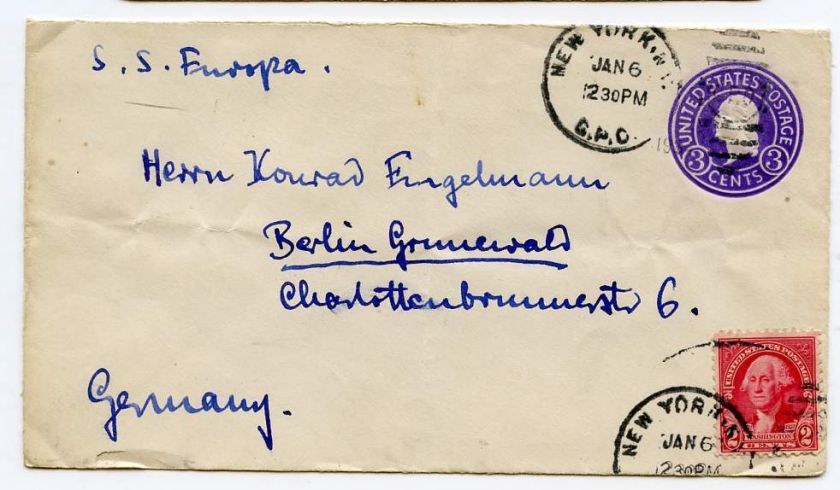 S. S. Europa.
NEW YORK, N.Y.
JAN 6
12 30 PM
G.P.O.
UNITED STATES POSTAGE
3 CENTS 3
Herrn Konrad Engelmann
Berlin Grunewald
Charlottenbrunnerstr 6.
Germany.
UNITED STATES POSTAGE
WASHINGTON
2 CENTS 2
NEW YORK, N
JAN 6
12 30 PM